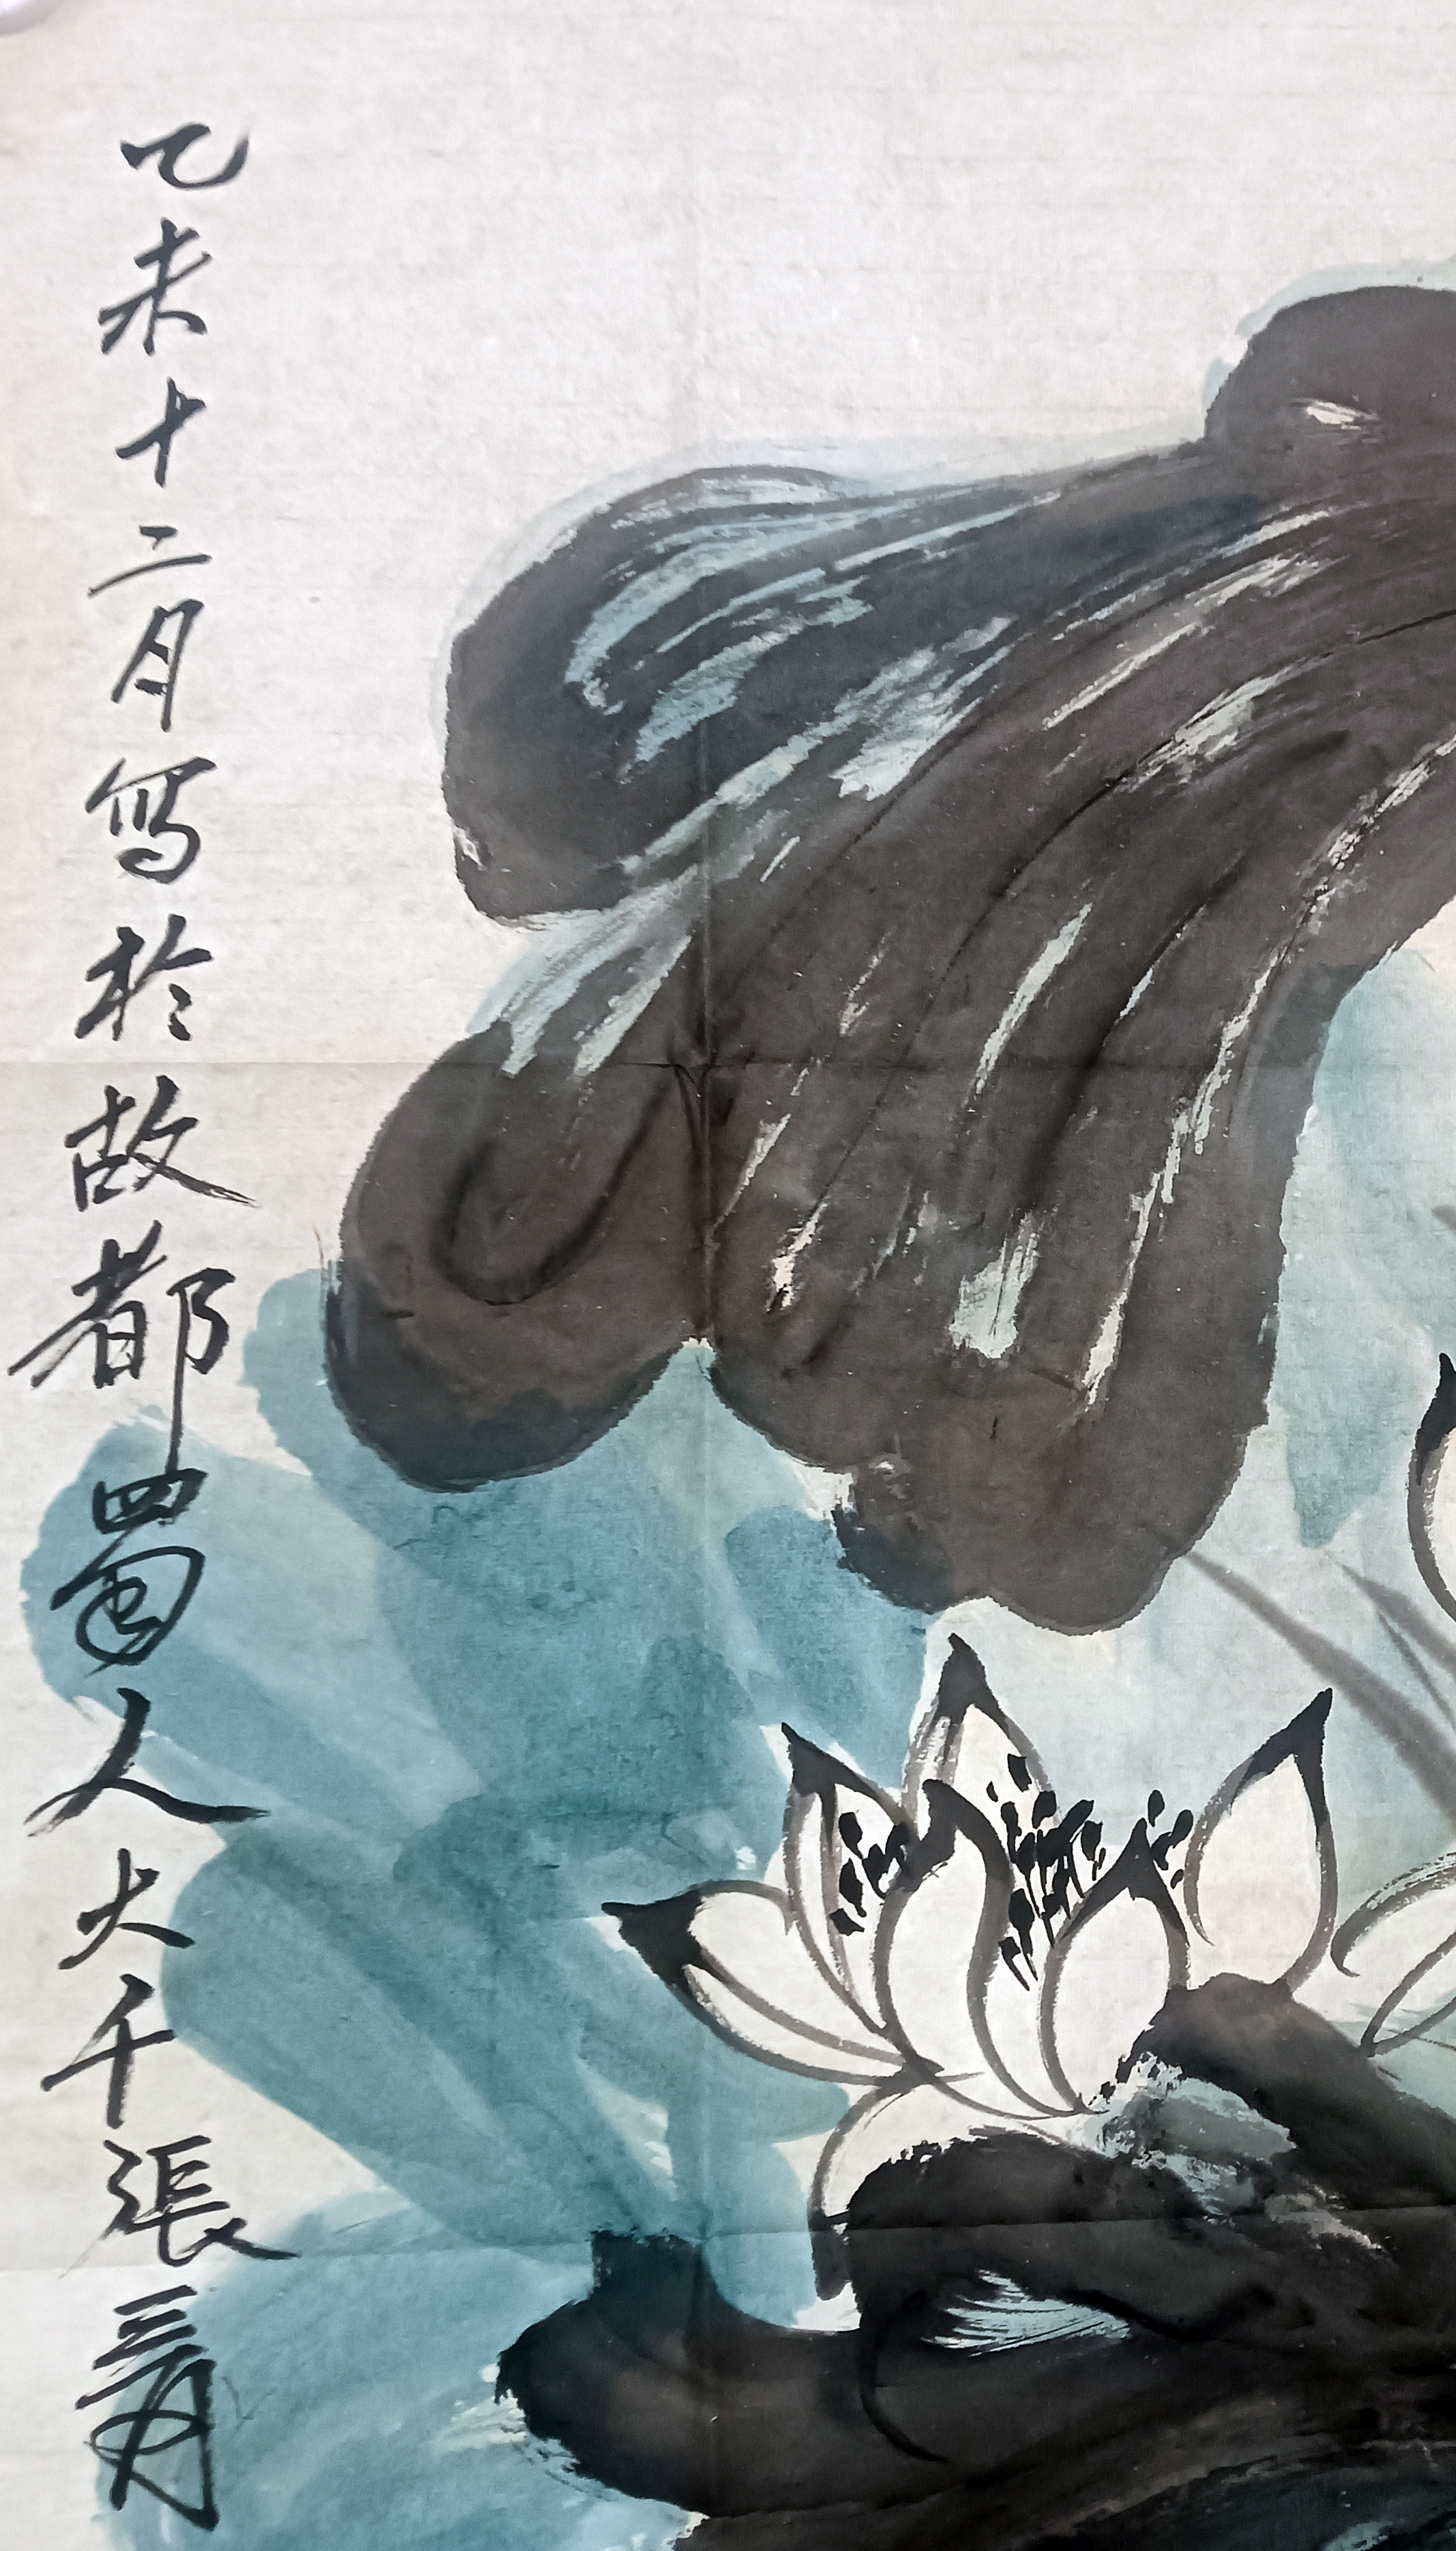 乙未十二月寫於故都蜀人大千張爰